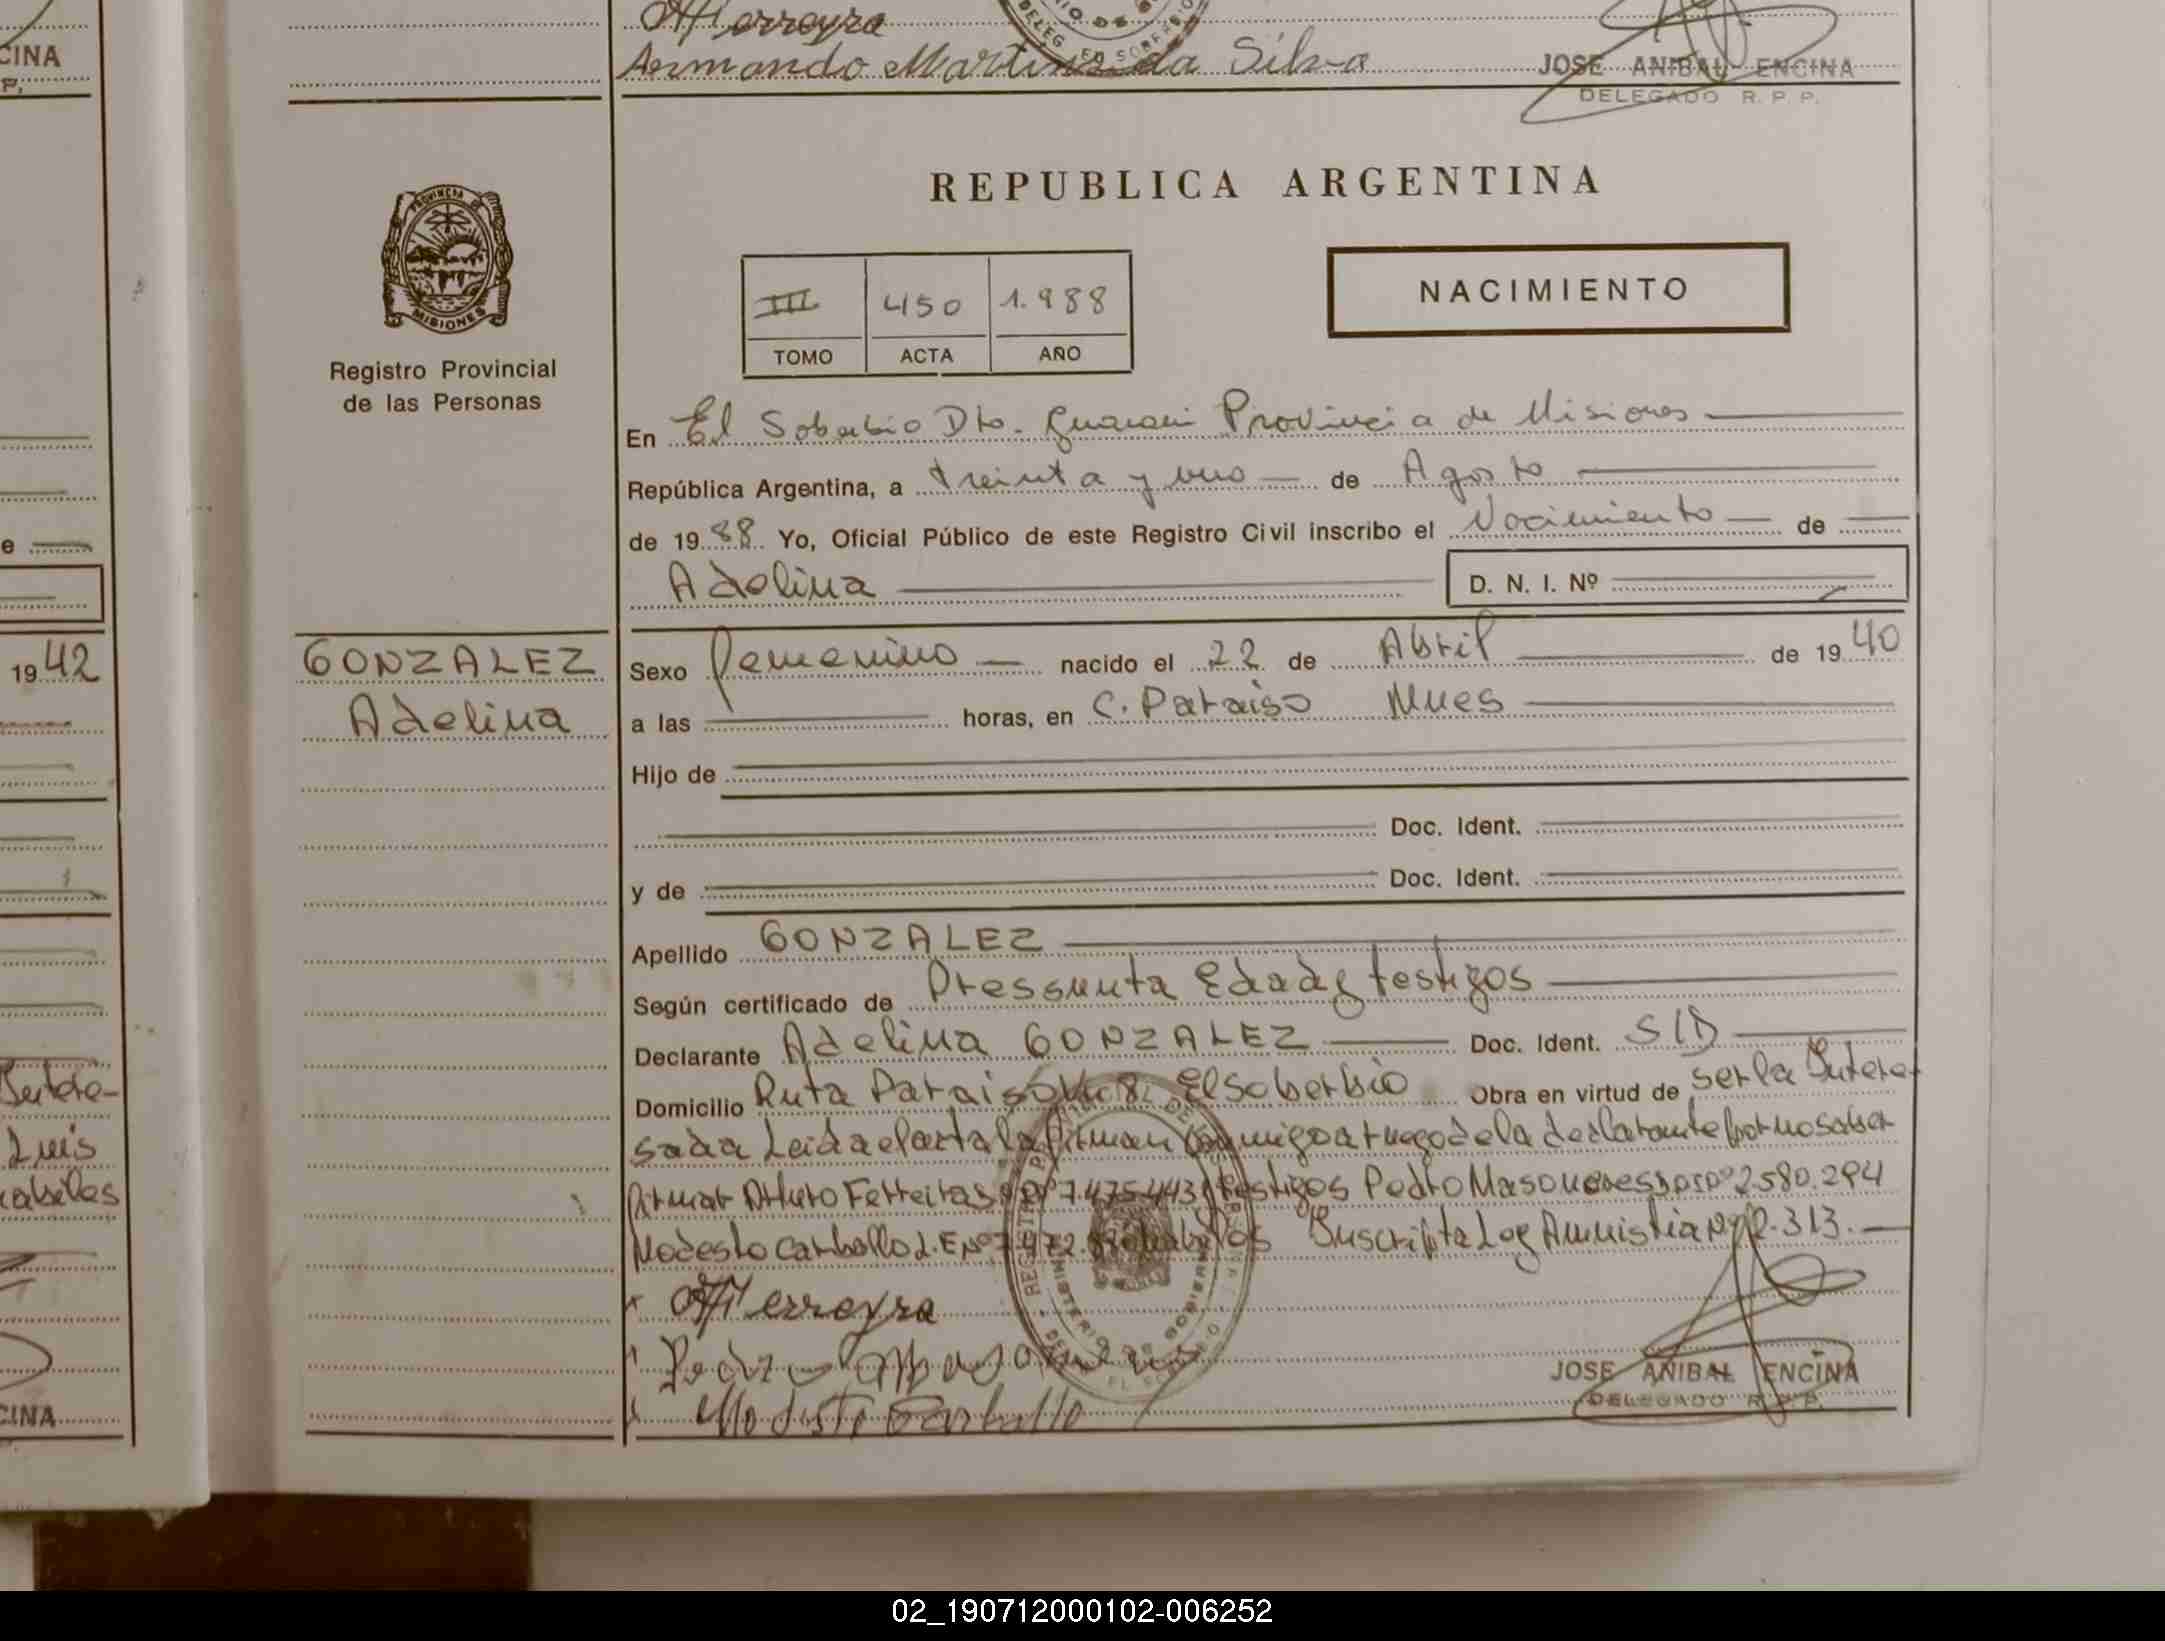 CINA
P.
Afferreyra
Armando Martins da Silva
JOSE ANIBAL ENCINA
DELEGADO R. P. P.
PROVINCIA DE
MISIONES
Registro Provincial
de las Personas
REPUBLICA ARGENTINA
III 450 1.988
TOMO ACTA AÑO
NACIMIENTO
En El Soberbio Dto. Guarani Provincia de Misiones
República Argentina, a treinta y uno de Agosto
de 19 88 Yo, Oficial Público de este Registro Civil inscribo el Nacimiento de
Adelina D. N. I. Nº
19 42
GONZALEZ
Adelina
Sexo femenino nacido el 22 de Abril de 19 40
a las horas, en C. Paraiso Mnes
Hijo de
Doc. Ident.
y de Doc. Ident.
Apellido GONZALEZ
Según certificado de Pressunta Edad y testigos
Declarante Adelina GONZALEZ Doc. Ident. S/D
Domicilio Ruta Paraiso El Soberbio Obra en virtud de ser la Intere-
sada Leida el acta la firman conmigo a ruego de la declarante por no saber
firmar Arturo Ferreiras 7.475.443 testigos Pedro 2.580.294
Modesto Carballo L.E Nº Suscripta Ley Amnistia Nº 2.313.
Luis
Afferreyra
Pedro
Modesto Carballo
JOSE ANIBAL ENCINA
DELEGADO R. P. P.
CINA
02_190712000102-006252